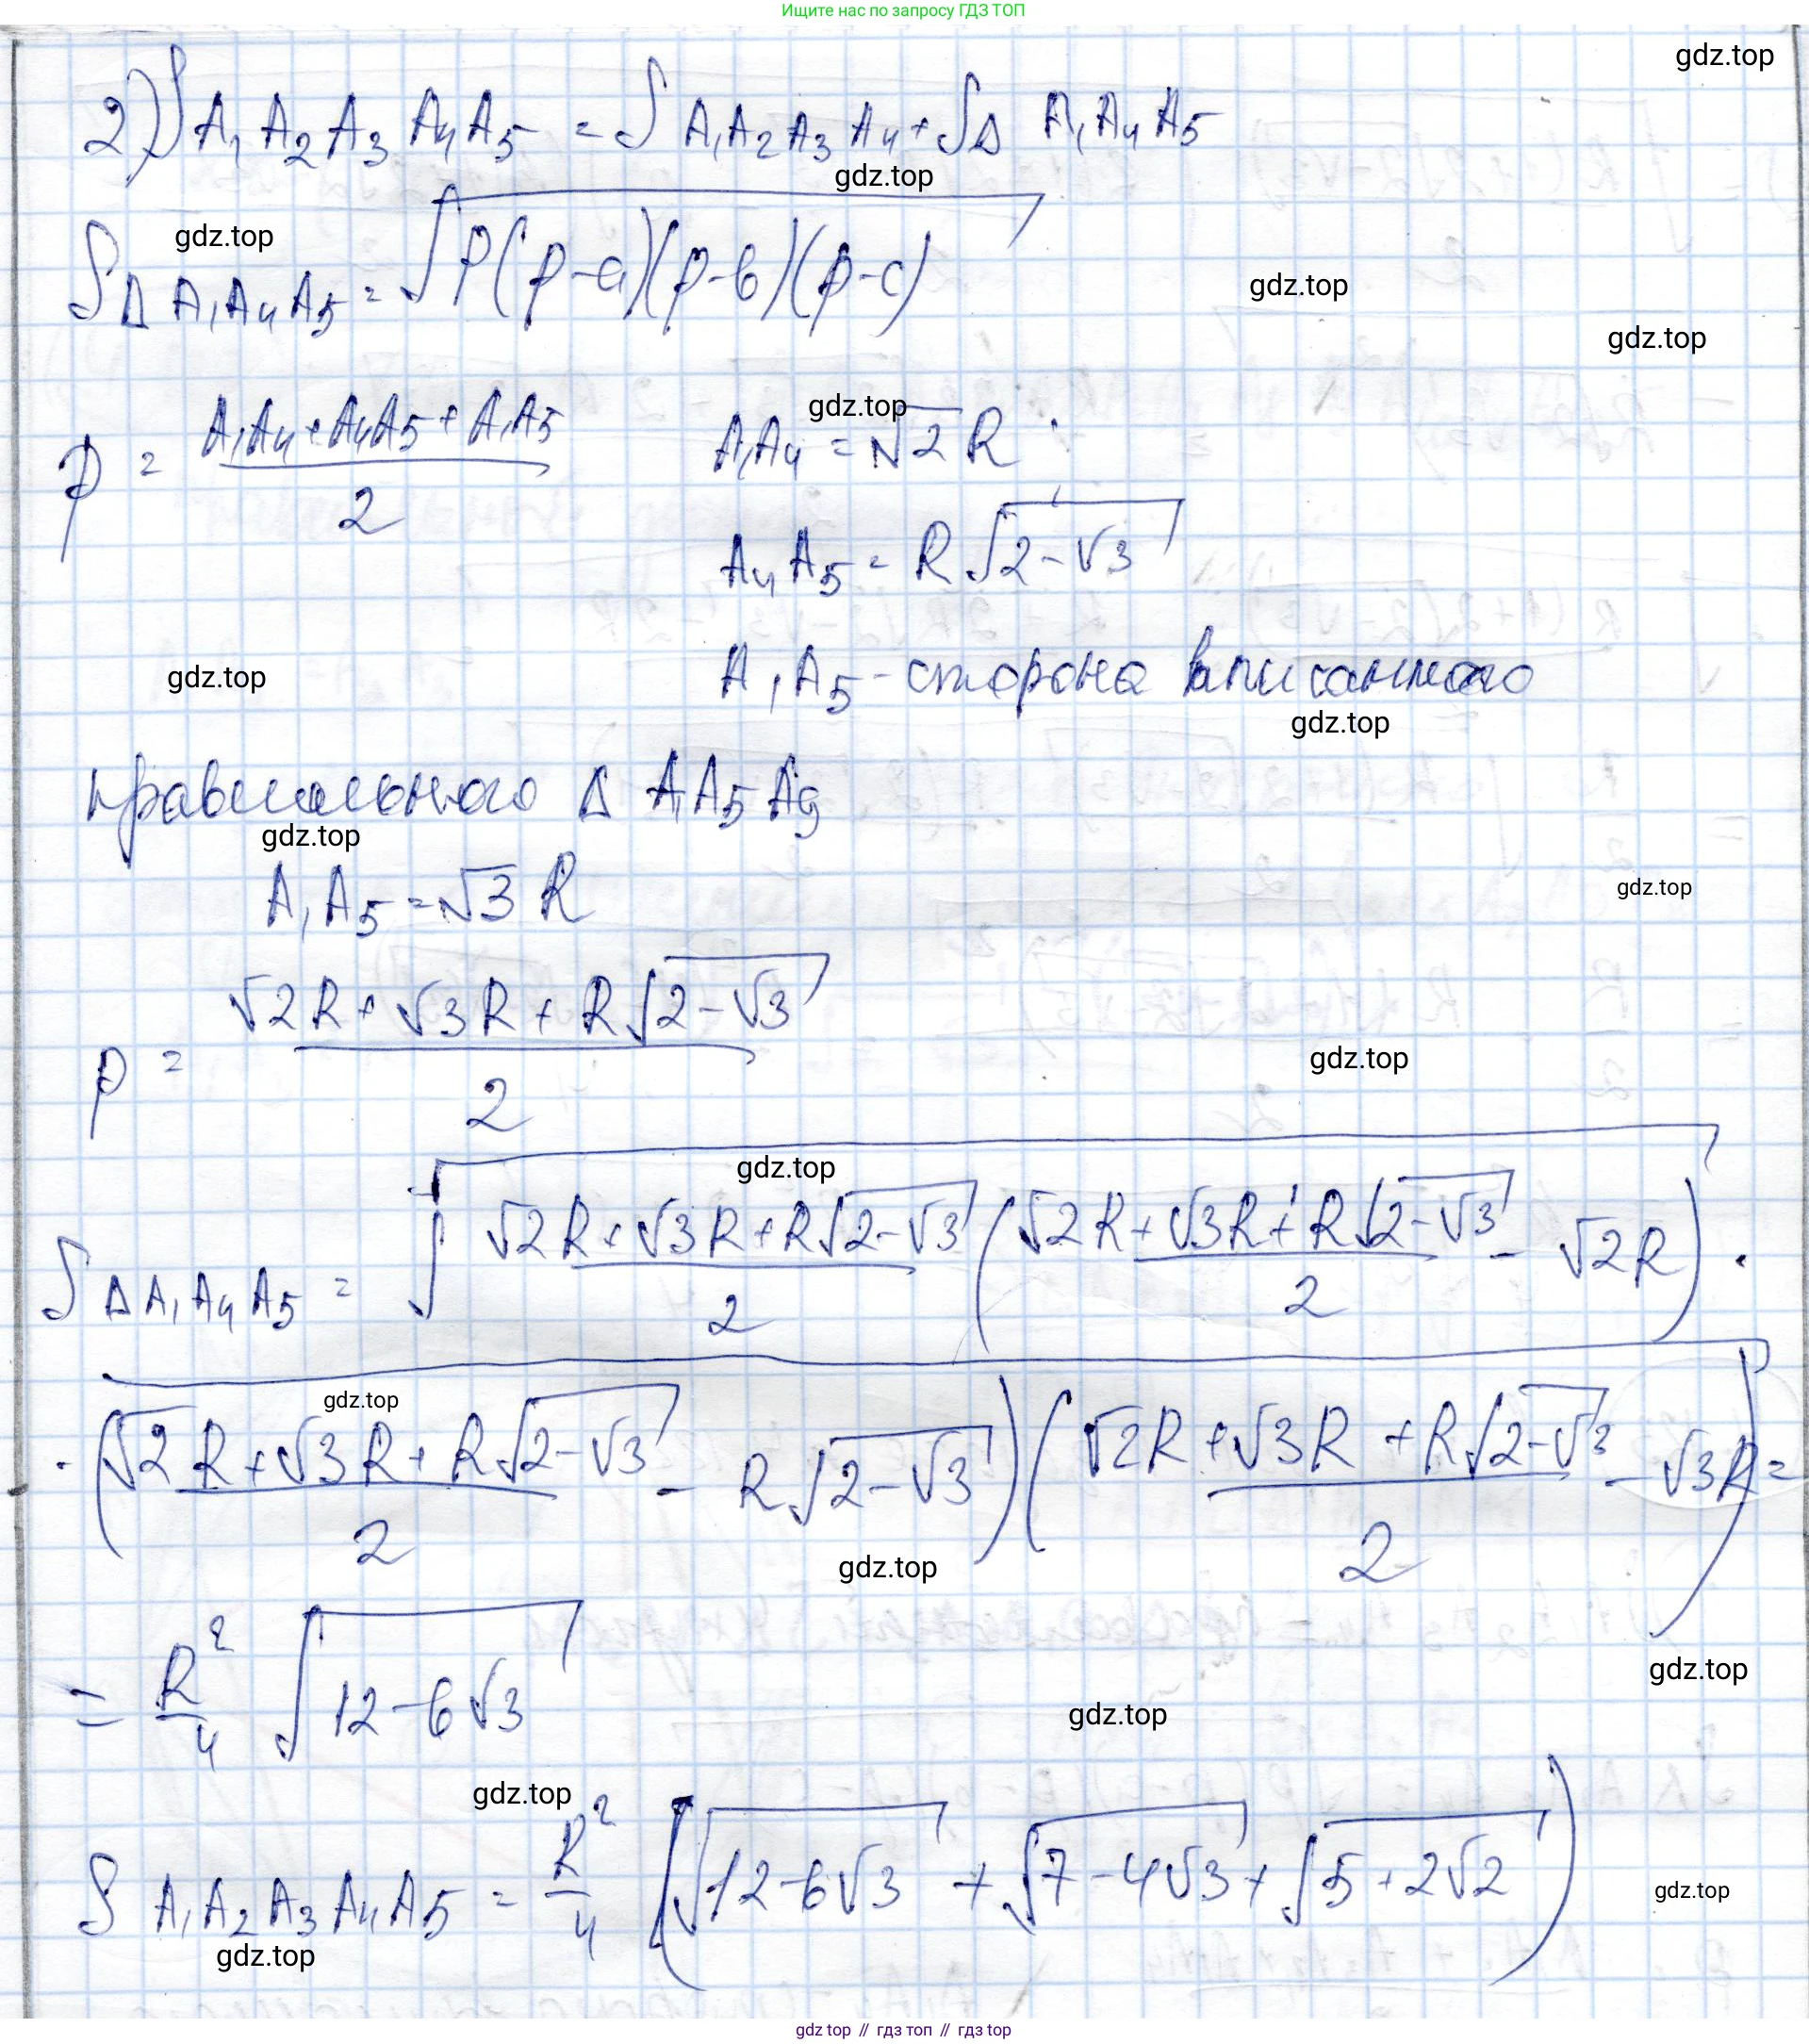 Ищите нас по запросу ГДЗ ТОП
gdz.top
2) S A₁A₂A₃A₄A₅ = S A₁A₂A₃A₄ + S△ A₁A₄A₅
gdz.top
gdz.top
S△A₁A₄A₅ = √(p(p-a)(p-b)(p-c))
gdz.top
gdz.top
p = (A₁A₄ + A₄A₅ + A₁A₅)/2
gdz.top
A₁A₄ = √2 R
A₄A₅ = R√(2-√3)
gdz.top
A₁A₅ - сторона вписанного
gdz.top
правильного △ A₁A₅A₉
gdz.top
A₁A₅ = √3 R
gdz.top
p = (√2R + √3R + R√(2-√3))/2
gdz.top
gdz.top
S△A₁A₄A₅ = √((√2R + √3R + R√(2-√3))/2 ((√2R + √3R + R√(2-√3))/2 - √2R) ·
gdz.top
· ((√2R + √3R + R√(2-√3))/2 - R√(2-√3)) ((√2R + √3R + R√(2-√3))/2 - √3R) =
gdz.top
= R²/4 √(12-6√3)
gdz.top
gdz.top
gdz.top
S A₁A₂A₃A₄A₅ = R²/4 (√(12-6√3) + √(7-4√3) + √(5+2√2))
gdz.top
gdz.top
gdz top // гдз топ // гдз top